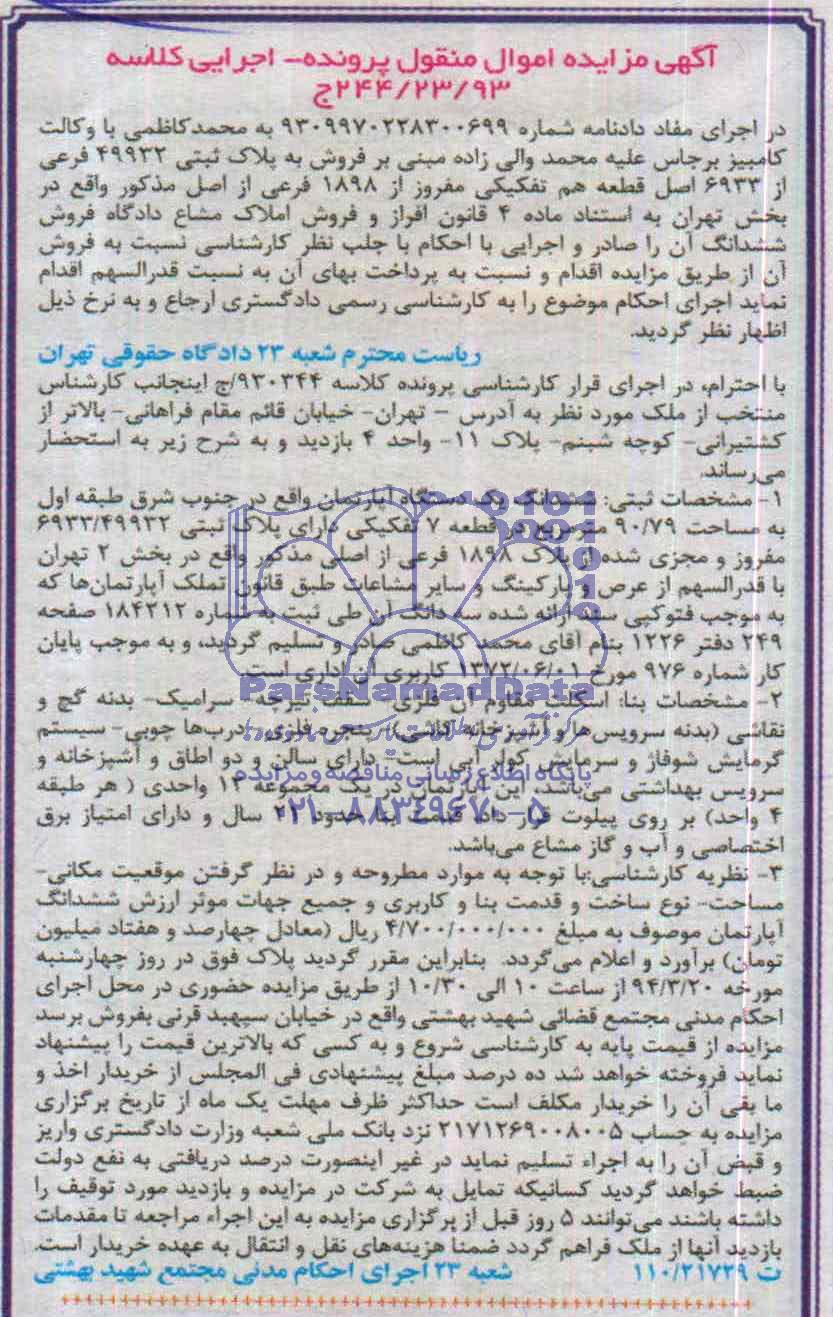 آگهی مزایده اموال منقول پرونده- اجرایی کلاسه
۲۴۴/۲۳/۹۳ج
در اجرای مفاد دادنامه شماره ۹۳۰۹۹۷۰۲۲۸۳۰۰۶۹۹ به محمدکاظمی با وکالت
کامبیز برجاس علیه محمد والی زاده مبنی بر فروش به پلاک ثبتی ۴۹۹۳۲ فرعی
از ۶۹۳۳ اصل قطعه هم تفکیکی مفروز از ۱۸۹۸ فرعی از اصل مذکور واقع در
بخش تهران به استناد ماده ۴ قانون افراز و فروش املاک مشاع دادگاه فروش
ششدانگ آن را صادر و اجرایی با احکام با جلب نظر کارشناسی نسبت به فروش
آن از طریق مزایده اقدام و نسبت به پرداخت بهای آن به نسبت قدرالسهم اقدام
نماید اجرای احکام موضوع را به کارشناسی رسمی دادگستری ارجاع و به نرخ ذیل
اظهار نظر گردید.
ریاست محترم شعبه ۲۳ دادگاه حقوقی تهران
با احترام، در اجرای قرار کارشناسی پرونده کلاسه ۹۳۰۳۴۴/ج اینجانب کارشناس
منتخب از ملک مورد نظر به آدرس – تهران- خیابان قائم مقام فراهانی- بالاتر از
کشتیرانی- کوچه شبنم- پلاک ۱۱- واحد ۴ بازدید و به شرح زیر به استحضار
می‌رساند.
۱- مشخصات ثبتی: ششدانگ یک دستگاه آپارتمان واقع در جنوب شرق طبقه اول
به مساحت ۹۰/۷۹ مترمربع در قطعه ۷ تفکیکی دارای پلاک ثبتی ۶۹۳۳/۴۹۹۳۲
مفروز و مجزی شده از پلاک ۱۸۹۸ فرعی از اصلی مذکور واقع در بخش ۲ تهران
با قدرالسهم از عرص و پارکینگ و سایر مشاعات طبق قانون تملک آپارتمان‌ها که
به موجب فتوکپی سند ارائه شده سه دانگ آن طی ثبت به شماره ۱۸۴۳۱۲ صفحه
۲۴۹ دفتر ۱۲۲۶ بنام آقای محمد کاظمی صادر و تسلیم گردید، و به موجب پایان
کار شماره ۹۷۶ مورخ ۱۳۷۲/۰۶/۰۱ کاربری آن اداری است.
ParsNamadData
۲- مشخصات بنا: اسکلت مقاوم آن فلزی- سقف تیرچه- سرامیک- بدنه گچ و
نقاشی (بدنه سرویس‌ها و آشپزخانه کاشی)- پنجره فلزی- درب‌ها چوبی- سیستم
گرمایش شوفاژ و سرمایش کولر آبی است- دارای سالن و دو اطاق و آشپزخانه و
پایگاه اطلاع رسانی مناقصه و مزایده
سرویس بهداشتی می‌باشد، این آپارتمان در یک مجموعه ۱۳ واحدی ( هر طبقه
۰۲۱-۸۸۳۴۹۶۷۰-۵
۴ واحد) بر روی پیلوت قرار دارد قدمت بنا حدود ۲۱ سال و دارای امتیاز برق
اختصاصی و آب و گاز مشاع می‌باشد.
۳- نظریه کارشناسی:با توجه به موارد مطروحه و در نظر گرفتن موقعیت مکانی-
مساحت- نوع ساخت و قدمت بنا و کاربری و جمیع جهات موثر ارزش ششدانگ
آپارتمان موصوف به مبلغ ۴/۷۰۰/۰۰۰/۰۰۰ ریال (معادل چهارصد و هفتاد میلیون
تومان) برآورد و اعلام می‌گردد. بنابراین مقرر گردید پلاک فوق در روز چهارشنبه
مورخه ۹۴/۳/۲۰ از ساعت ۱۰ الی ۱۰/۳۰ از طریق مزایده حضوری در محل اجرای
احکام مدنی مجتمع قضائی شهید بهشتی واقع در خیابان سپهبد قرنی بفروش برسد
مزایده از قیمت پایه به کارشناسی شروع و به کسی که بالاترین قیمت را پیشنهاد
نماید فروخته خواهد شد ده درصد مبلغ پیشنهادی فی المجلس از خریدار اخذ و
ما بقی آن را خریدار مکلف است حداکثر ظرف مهلت یک ماه از تاریخ برگزاری
مزایده به حساب ۲۱۷۱۲۶۹۰۰۸۰۰۵ نزد بانک ملی شعبه وزارت دادگستری واریز
و قبض آن را به اجراء تسلیم نماید در غیر اینصورت درصد دریافتی به نفع دولت
ضبط خواهد گردید کسانیکه تمایل به شرکت در مزایده و بازدید مورد توقیف را
داشته باشند می‌توانند ۵ روز قبل از برگزاری مزایده به این اجراء مراجعه تا مقدمات
بازدید آنها از ملک فراهم گردد ضمنا هزینه‌های نقل و انتقال به عهده خریدار است.
ت ۱۱۰/۲۱۷۳۹ شعبه ۲۳ اجرای احکام مدنی مجتمع شهید بهشتی